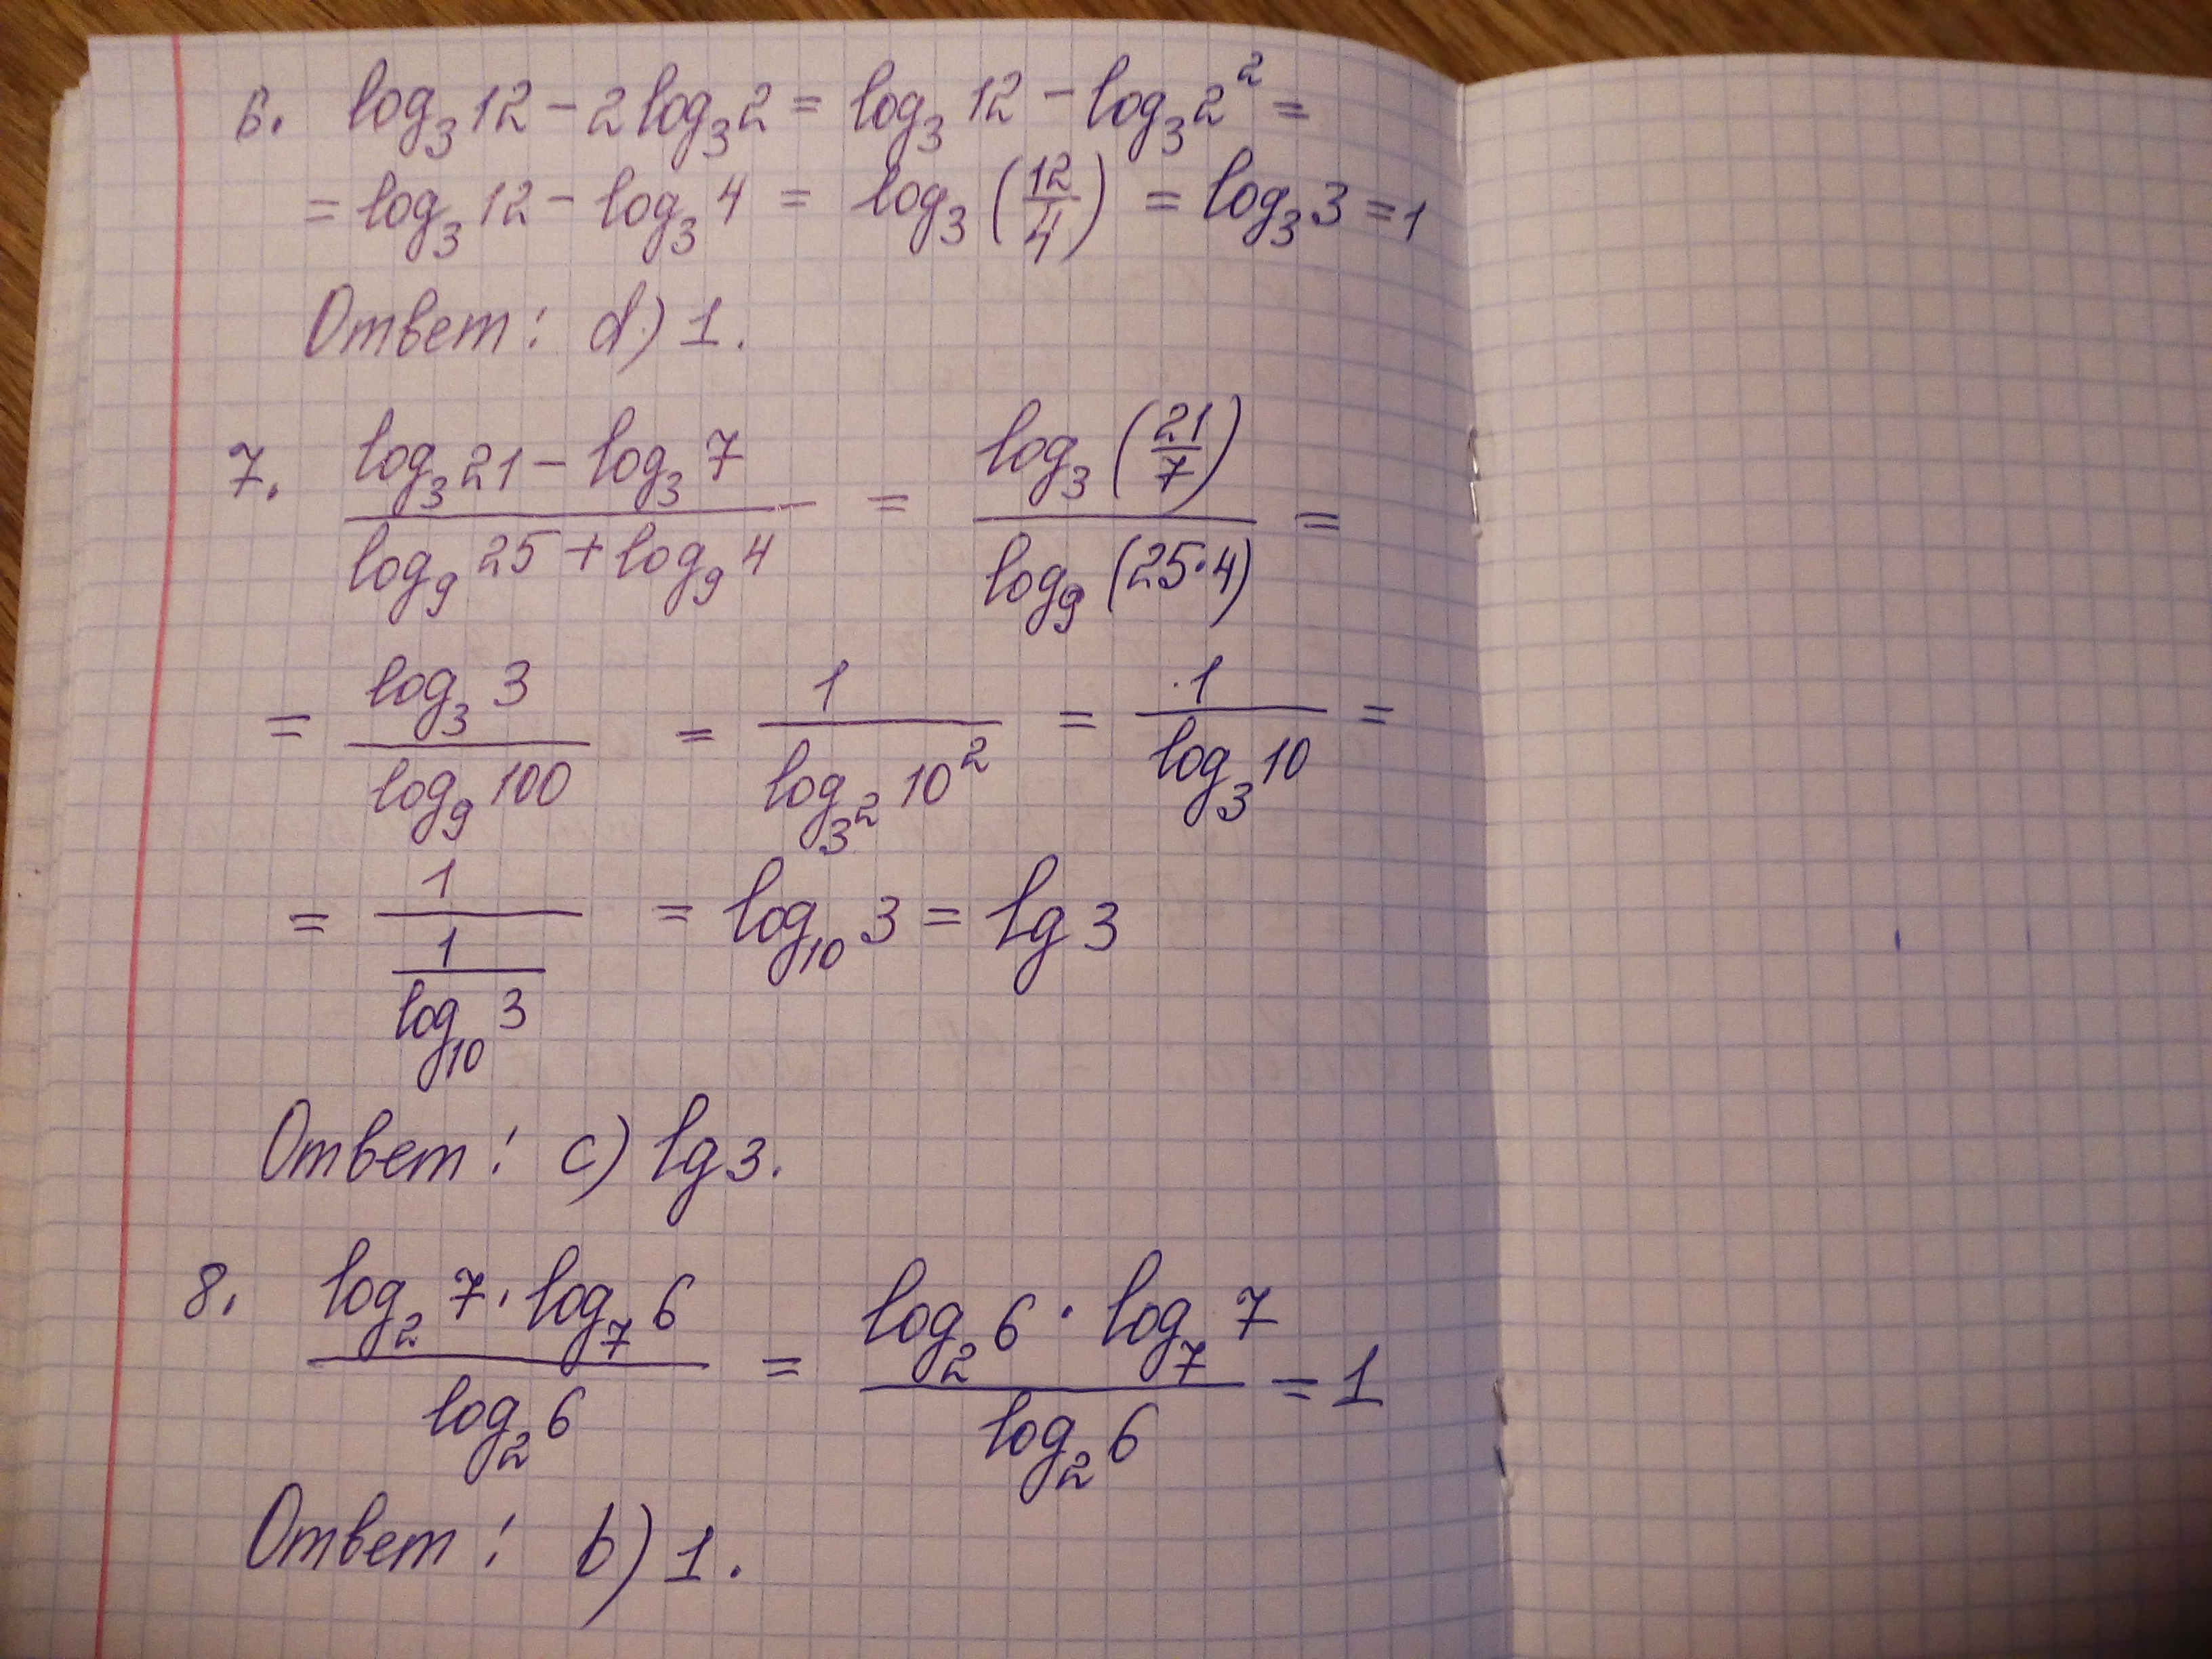 6. log₃12 − 2log₃2 = log₃12 − log₃2² =
= log₃12 − log₃4 = log₃(12/4) = log₃3 = 1
Ответ: d) 1.
7. (log₃21 − log₃7)/(log₉25 + log₉4) = log₃(21/7)/log₉(25·4) =
= log₃3/log₉100 = 1/log_{3²}10² = 1/log₃10 =
= 1/(1/log₁₀3) = log₁₀3 = lg3
Ответ: c) lg3.
8. (log₂7·log₇6)/log₂6 = (log₂6·log₇7)/log₂6 = 1
Ответ: b) 1.